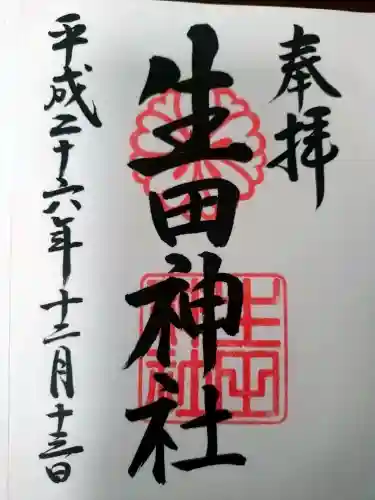 奉拝
生田神社
平成二十六年十二月十三日
生田神社